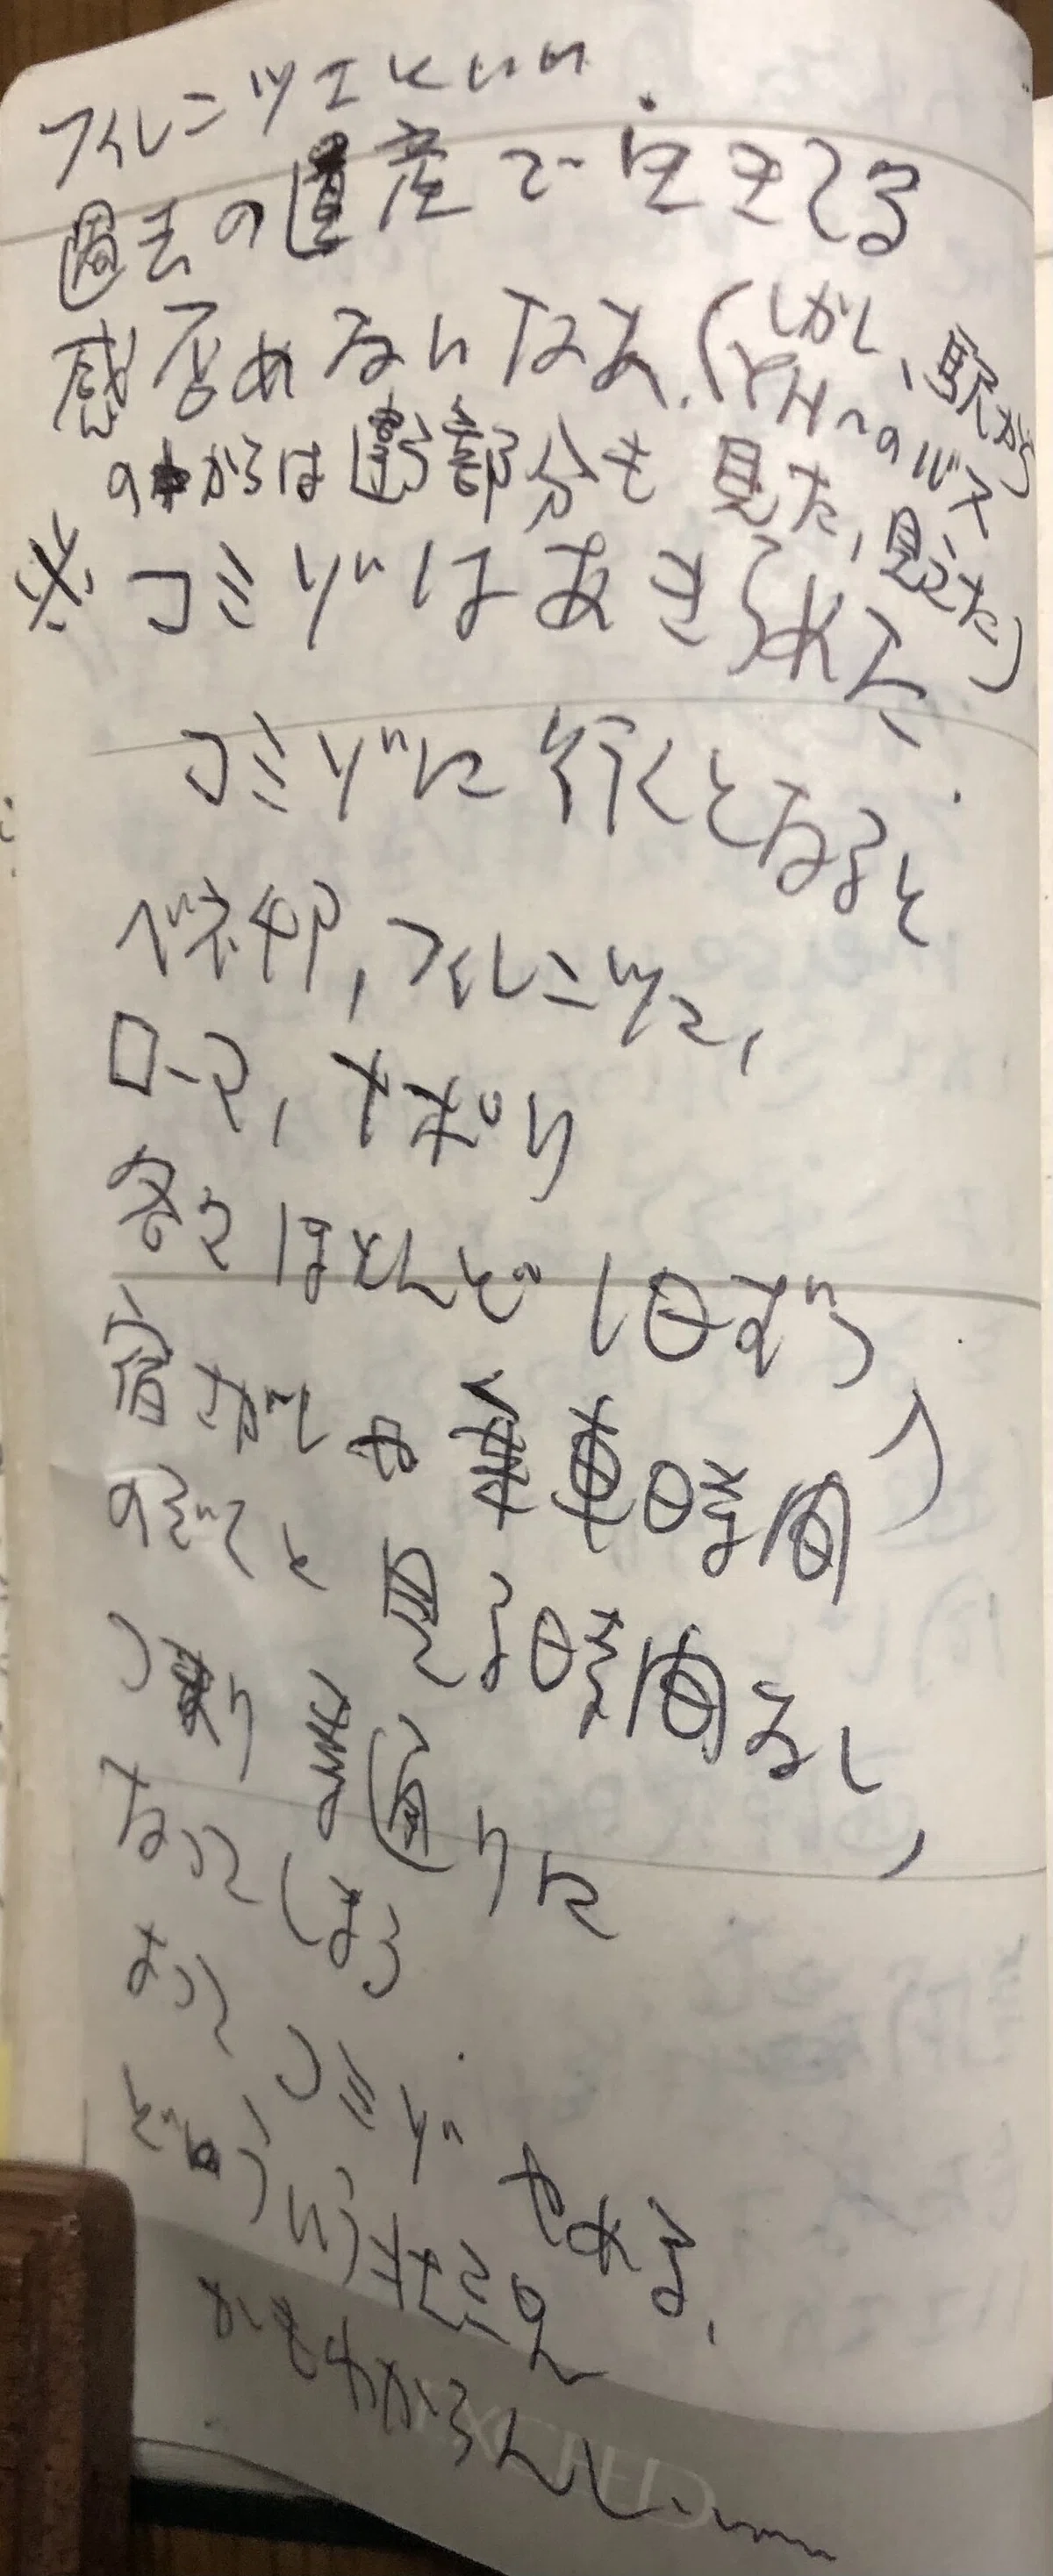 フィレンツェといい
過去の遺産で生きてる
感否めないなあ。(しかし、駅から
YHへのバス
の中からは違う部分も見た、見えた)
※コミゾはあきらめた.
コミゾに行くとなると
ベネチア, フィレンツェ,
ローマ, ナポリ
各々ほとんど1日ずつ,
宿さがしや電車時間
のぞくと見る時間なし,
つまり素通りに
なってしまう
よってコミゾやめる.
どういう状況
かもわからんし……
EXCEED